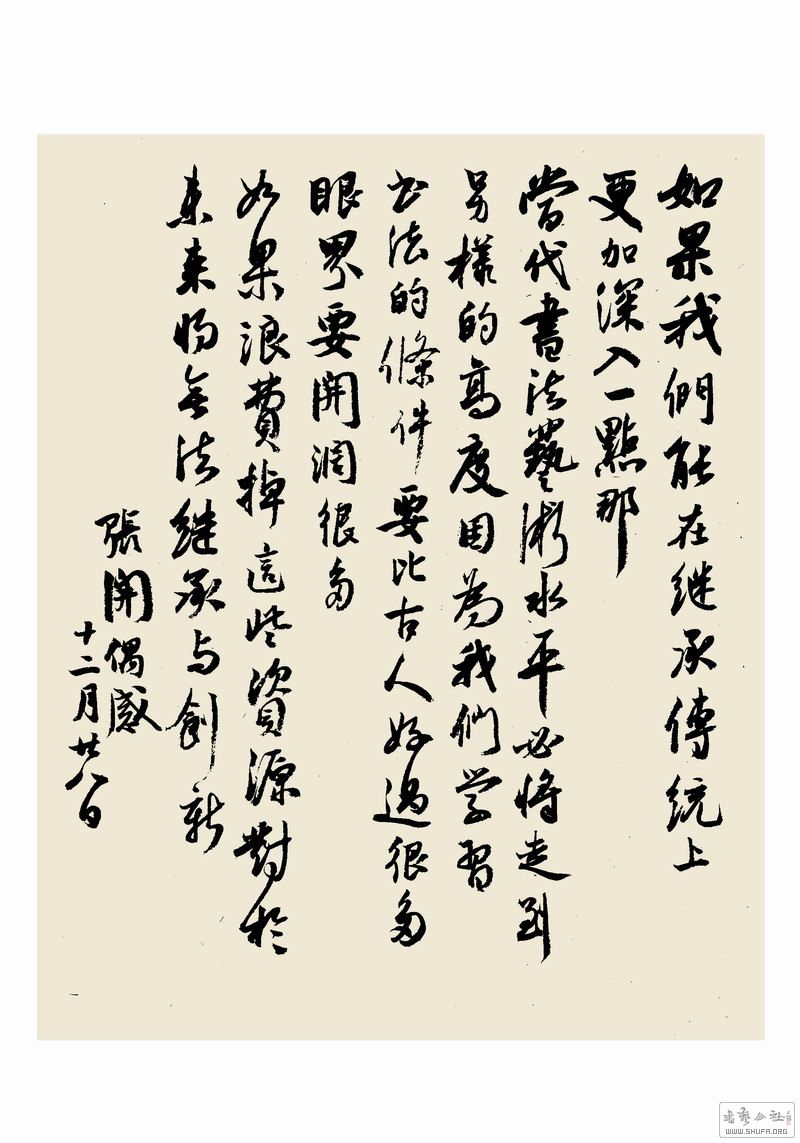 如果我們能在继承傳统上
更加深入一點那
當代書法藝術水平必将走到
另樣的高度因為我們学習
书法的條件要比古人好過很多
眼界要開濶很多
如果浪費掉這些資源對於
未来将无法继承与創新
張開偶感
十二月廿八日
書藝公社
WWW.SHUFA.ORG